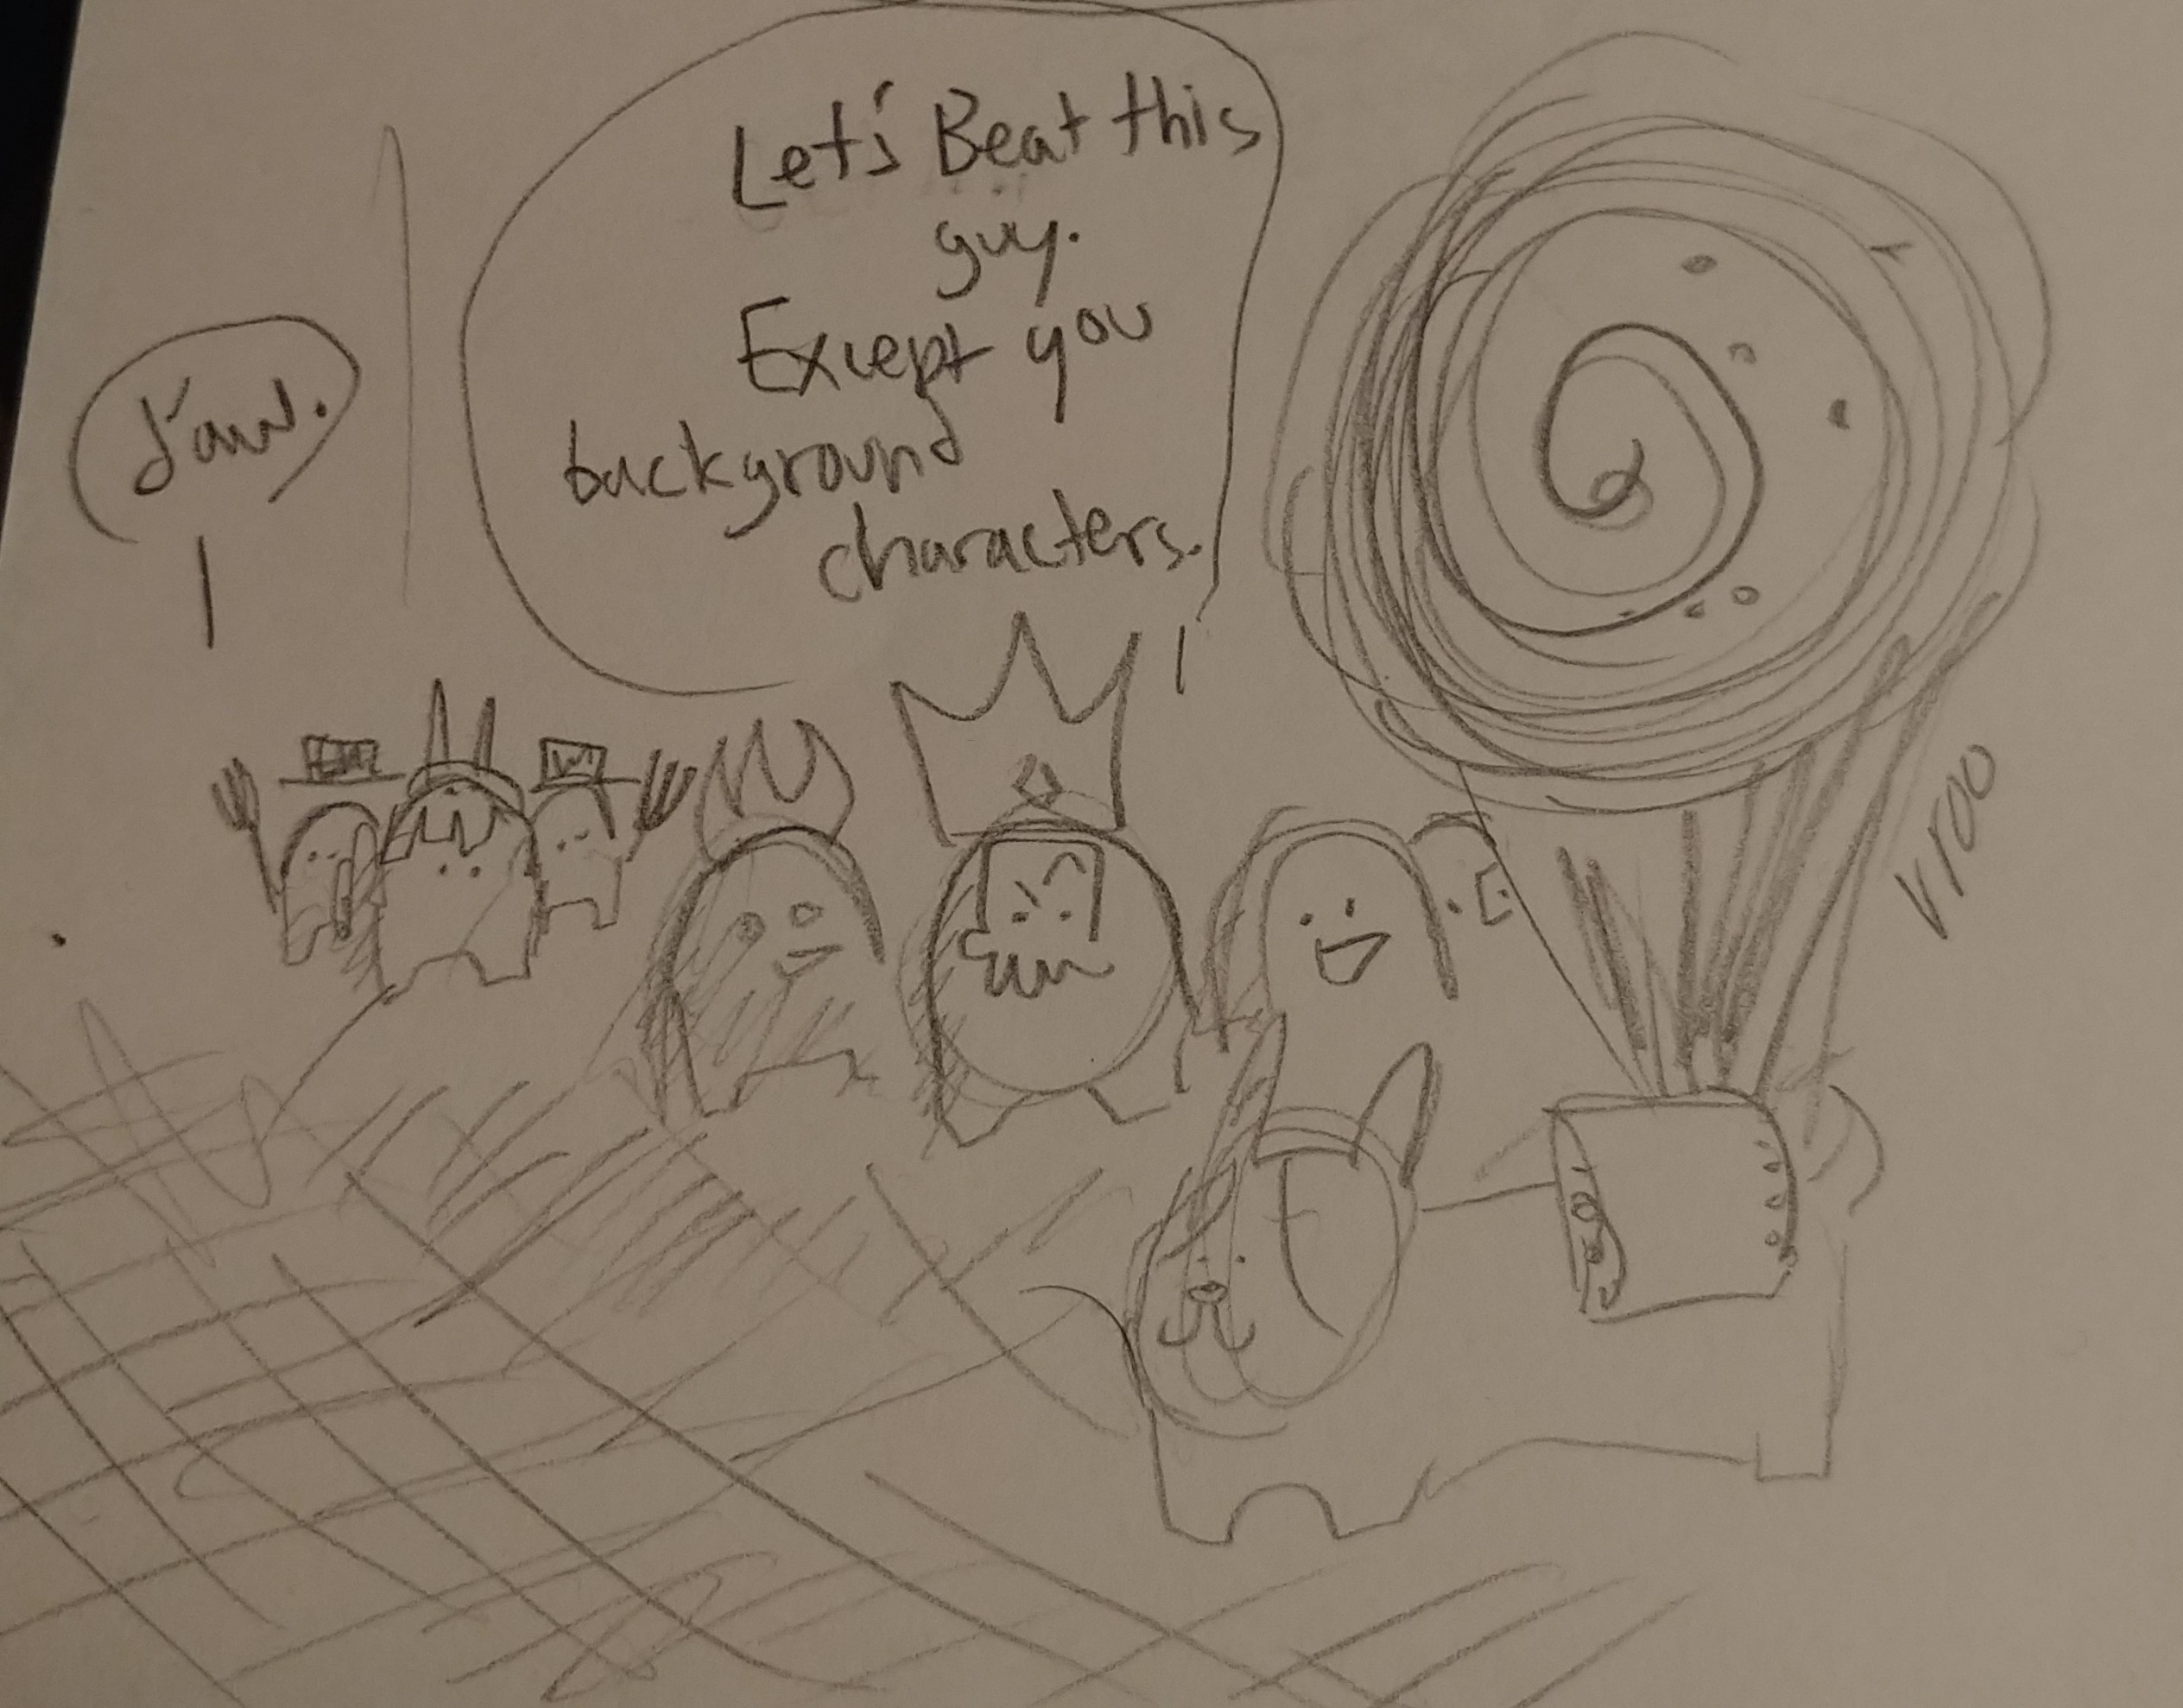 Let's Beat this
guy.
Except you
background
characters.
d'aw.
vroo